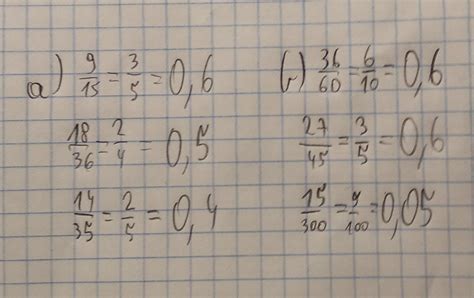 а) 9/15 = 3/5 = 0,6
18/36 = 2/4 = 0,5
14/35 = 2/5 = 0,4
б) 36/60 = 6/10 = 0,6
27/45 = 3/5 = 0,6
15/300 = 9/100 = 0,05